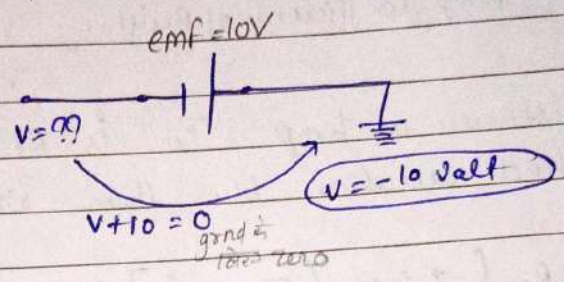 emf = 10V
V = ??
V = -10 Valt
V + 10 = 0
grnd के
लिए zero